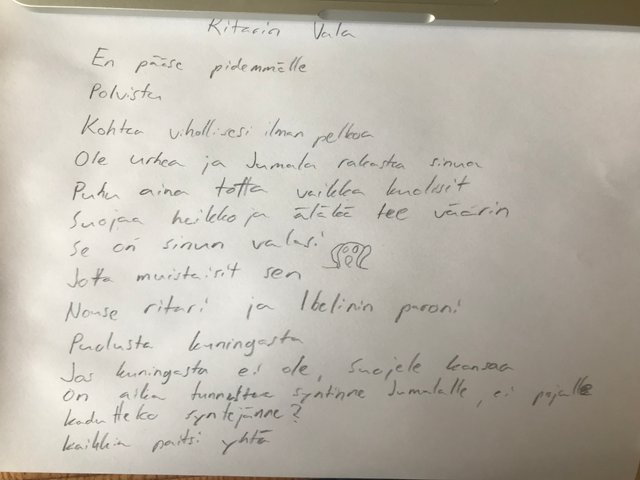 Ritarin Vala
En pääse pidemmälle
Polvistu
Kohtaa vihollisesi ilman pelkoa
Ole urhea ja Jumala rakasta sinua
Puhu aina totta vaikka kuolisit
Suojaa heikko ja äläkä tee väärin
Se on sinun valasi
Jotta muistaisit sen
Nouse ritari ja Ibelinin paroni
Puolusta kuningasta
Jos kuningasta ei ole, suojele kansaa
On aika tunnustaa syntinne Jumalalle, ei pojalle
kadutteko syntejänne?
kaikkia paitsi yhtä